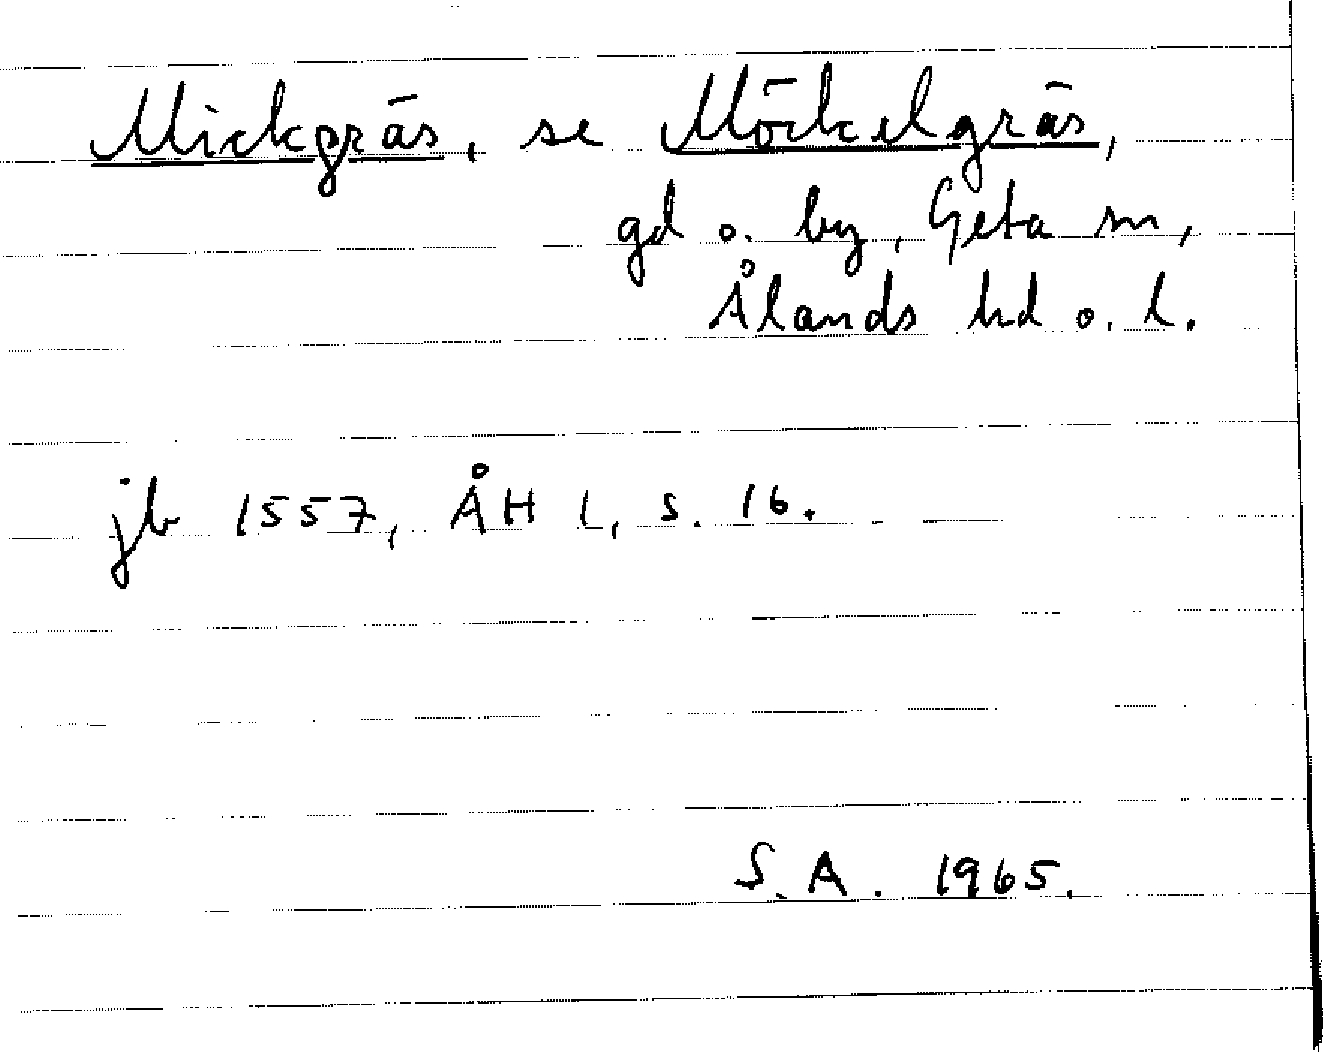 Mickgräs, se Möckelgräs,
gd o. by, Geta sn,
Ålands hd o. l.
jb 1557, ÅH 1, s. 16.
S.A. 1965.